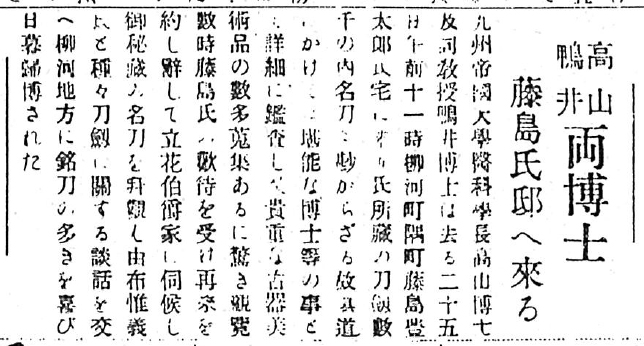 高山
鴨井
両博士
藤島氏邸へ來る
九州帝國大學醫科學長高山博士
及同教授鴨井博士は去る二十五
日午前十一時柳河町隅町藤島豊
太郎氏宅に 氏所藏の刀劔數
千の内名刀も尠からざる故其道
にかけては堪能な博士等の事と
て詳細に鑑査し又貴重な古器美
術品の數多蒐集あるに驚き觀覽
數時藤島氏の歓待を受け再來を
約し辭して立花伯爵家に伺候し
御秘藏の名刀を拜觀し由布惟義
氏と種々刀劔に關する談話を交
へ柳河地方に銘刀の多きを喜び
日暮歸博された